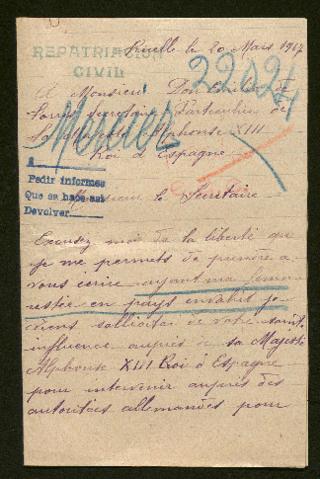 REPATRIACION
CIVIL
Ruelle le 20 Mars 1917
A Monsieur Don Emilio de
Secretaire Particulier de
Sa Majesté Alphonse XIII
Roi d'Espagne
Mercier
A
Pedir informes
Que se hace así
Devolver
Monsieur le Secrétaire
Excusez moi de la liberté que
je me permets de prendre a
vous ecrire ayant ma femme
restée en pays envahit je
viens solliciter de votre
influence auprès de sa Majesté
Alphonse XIII Roi d'Espagne
pour intervenir auprès des
autorités allemandes pour